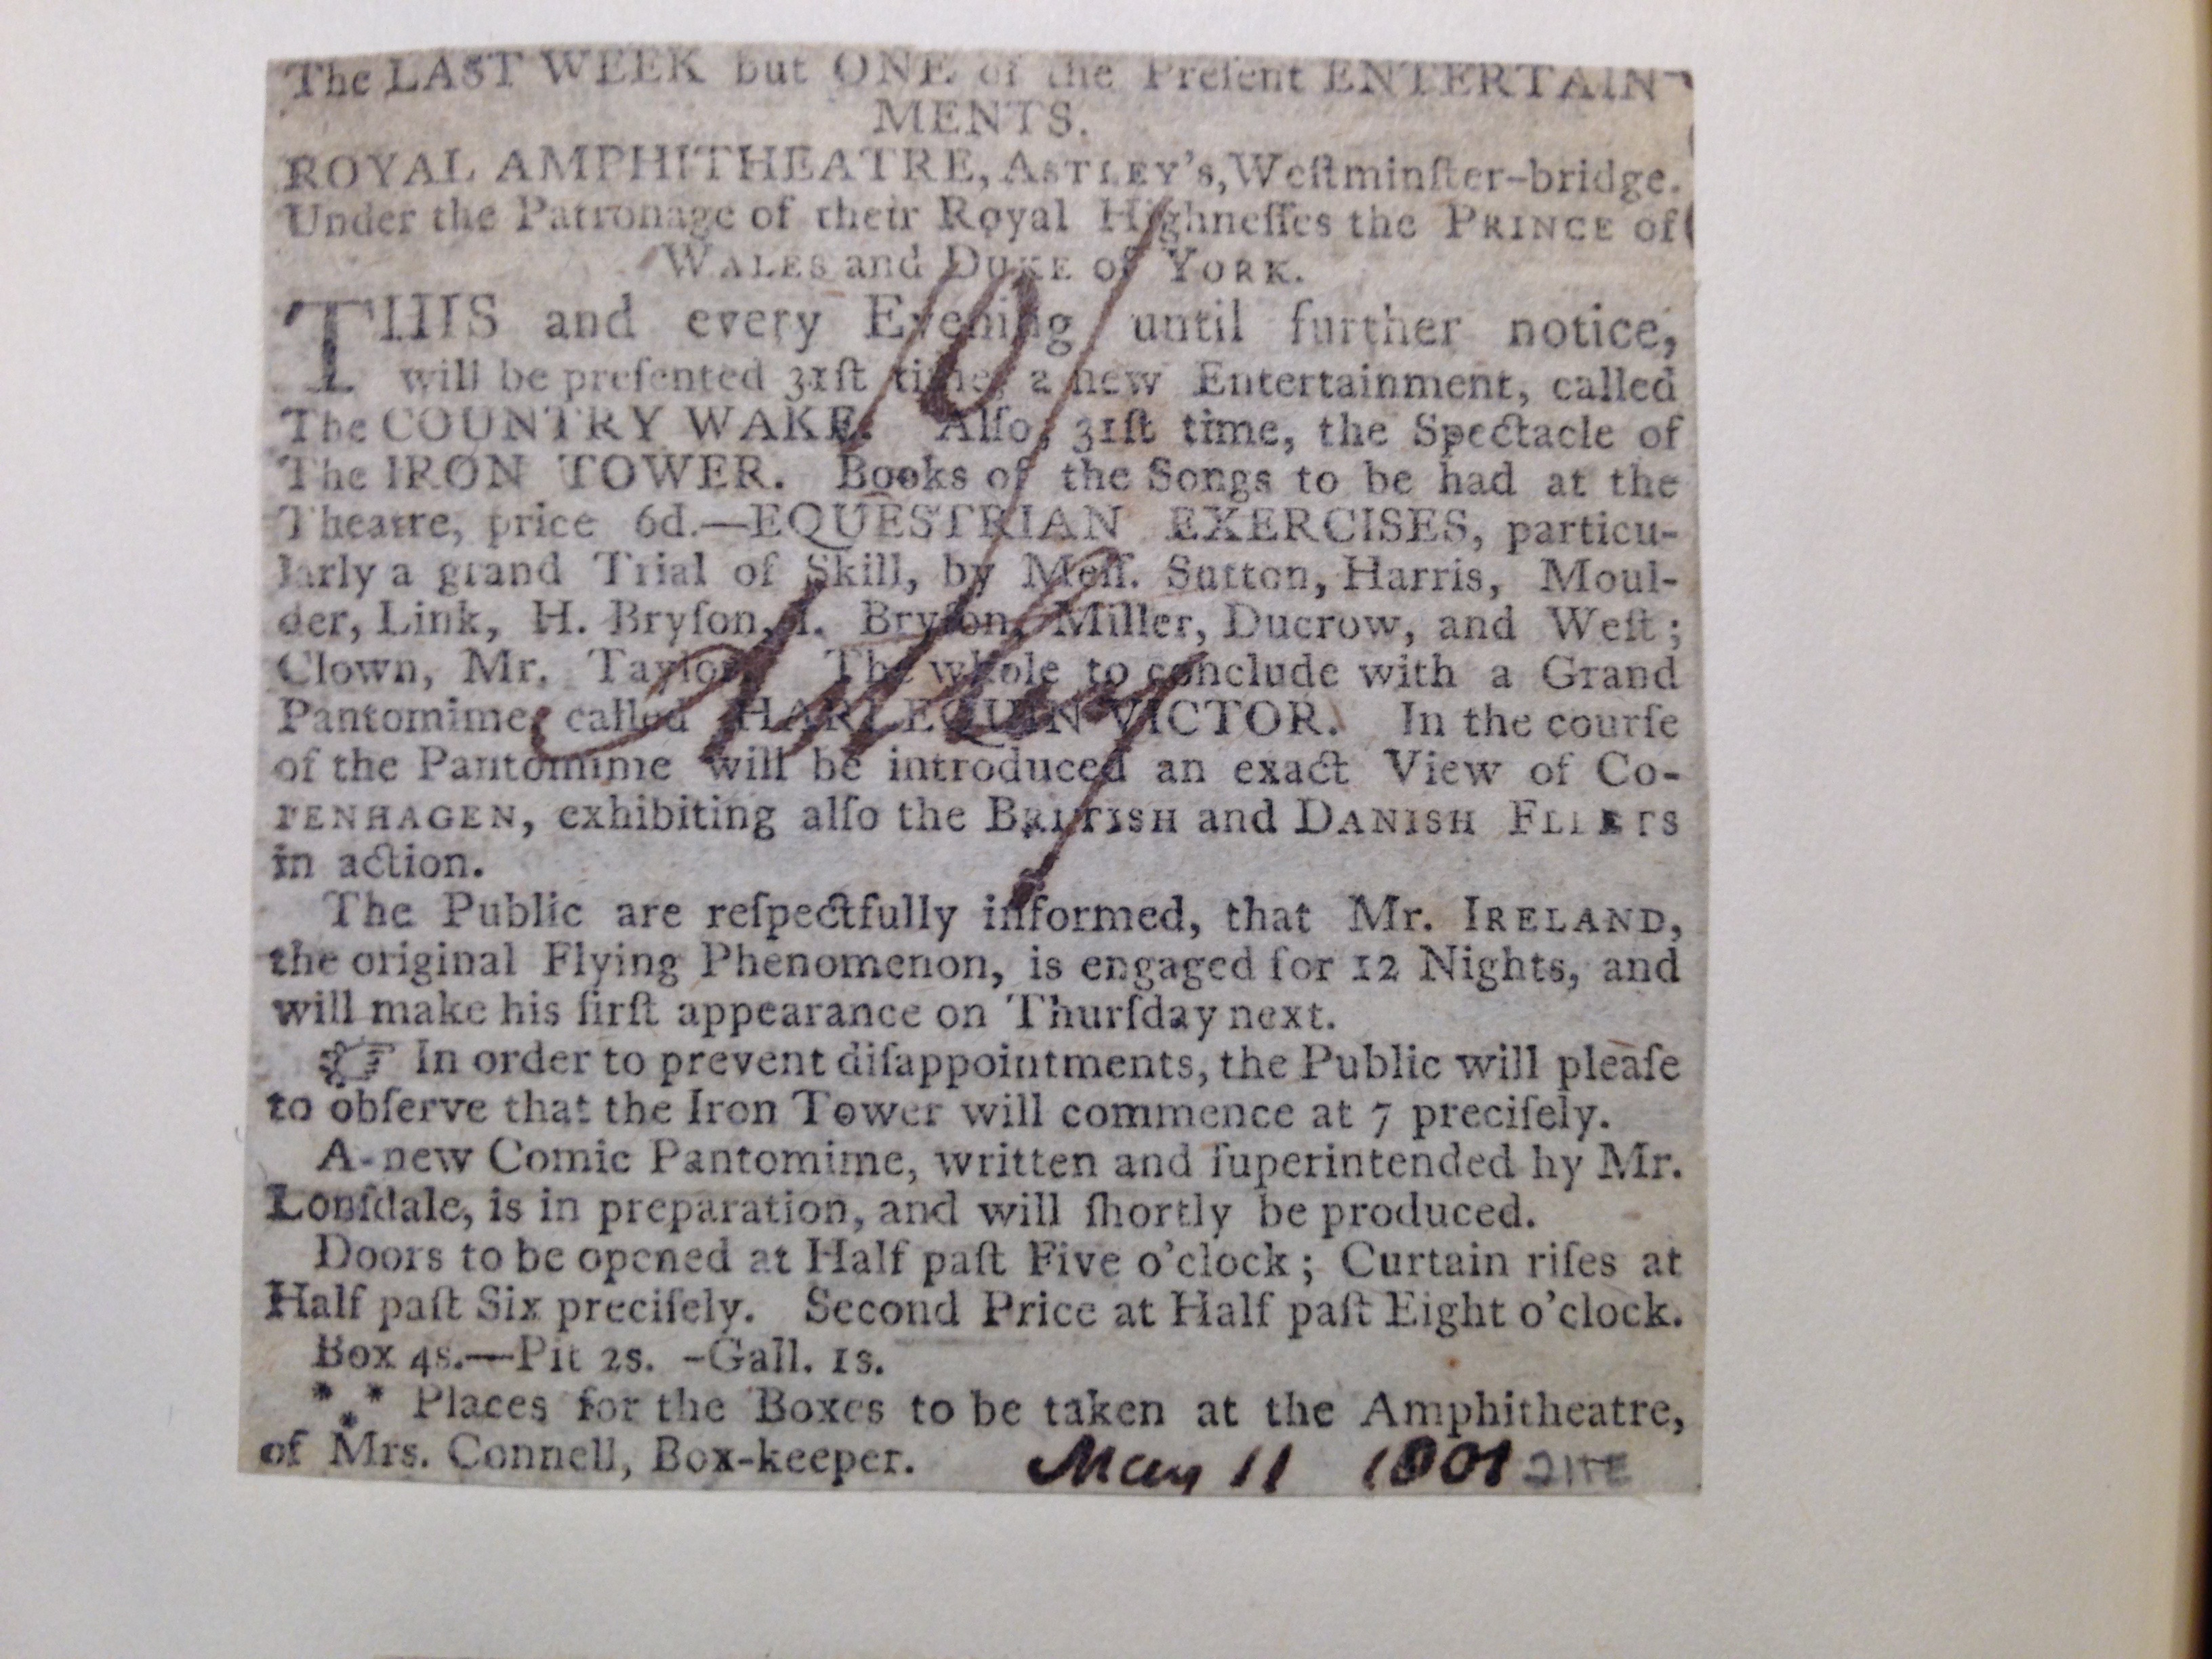 The LAST WEEK but ONE of the Preſent ENTERTAIN-
MENTS.
ROYAL AMPHITHEATRE, ASTLEY's, Weſtminſter-bridge.
Under the Patronage of their Royal Highneſſes the PRINCE of
WALES and DUKE of YORK.
THIS and every Evening until further notice,
will be preſented 31ſt time, a new Entertainment, called
The COUNTRY WAKE. Alſo, 31ſt time, the Spectacle of
The IRON TOWER. Books of the Songs to be had at the
Theatre, price 6d.—EQUESTRIAN EXERCISES, particu-
larly a grand Trial of Skill, by Meſſ. Sutton, Harris, Moul-
der, Link, H. Bryſon, I. Bryſon, Miller, Ducrow, and Weſt;
Clown, Mr. Taylor. The whole to conclude with a Grand
Pantomime, called HARLEQUIN VICTOR. In the courſe
of the Pantomime will be introduced an exact View of Co-
PENHAGEN, exhibiting alſo the BRITISH and DANISH FLEETS
in action.
The Public are reſpectfully informed, that Mr. IRELAND,
the original Flying Phenomenon, is engaged for 12 Nights, and
will make his firſt appearance on Thurſday next.
☞ In order to prevent diſappointments, the Public will pleaſe
to obſerve that the Iron Tower will commence at 7 preciſely.
A new Comic Pantomime, written and ſuperintended by Mr.
Lonſdale, is in preparation, and will ſhortly be produced.
Doors to be opened at Half paſt Five o'clock; Curtain riſes at
Half paſt Six preciſely. Second Price at Half paſt Eight o'clock.
Box 4s.—Pit 2s. -Gall. 1s.
*⁎* Places for the Boxes to be taken at the Amphitheatre,
of Mrs. Connell, Box-keeper. May 11 1801